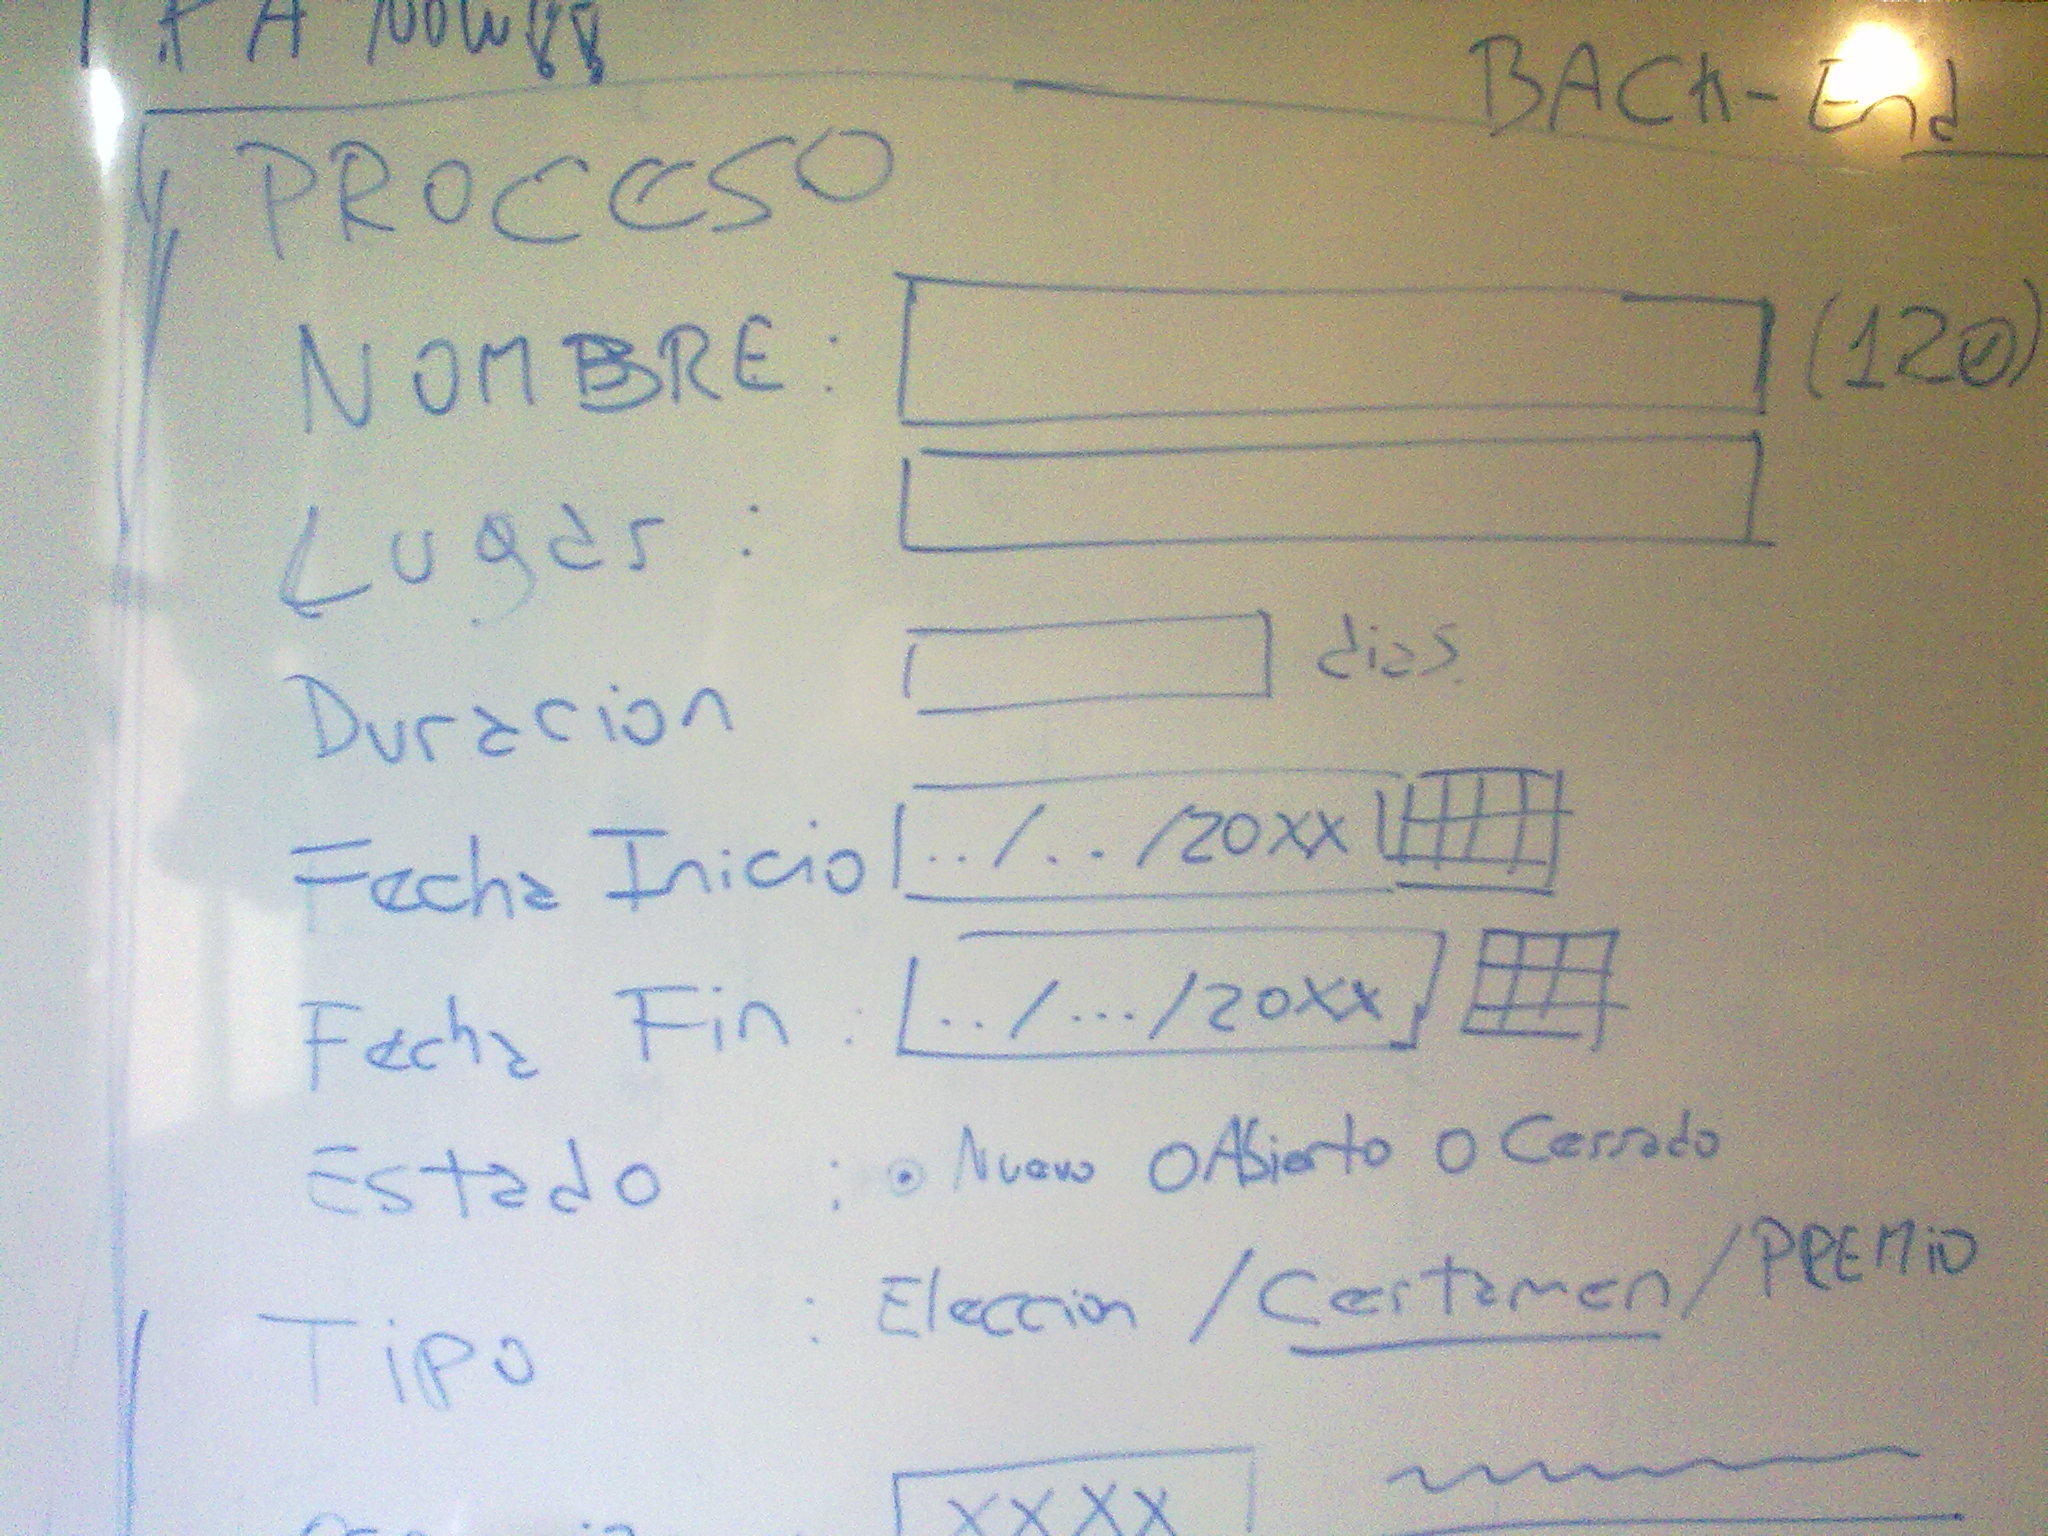 BACK-End
PROCESO
NOMBRE: (120)
Lugar :
Duracion dias
Fecha Inicio ../../20XX
Fecha Fin : ../.../20XX
Estado : Nuevo O Abierto O Cerrado
Tipo : Eleccion / Certamen / PREMIO
XXXX